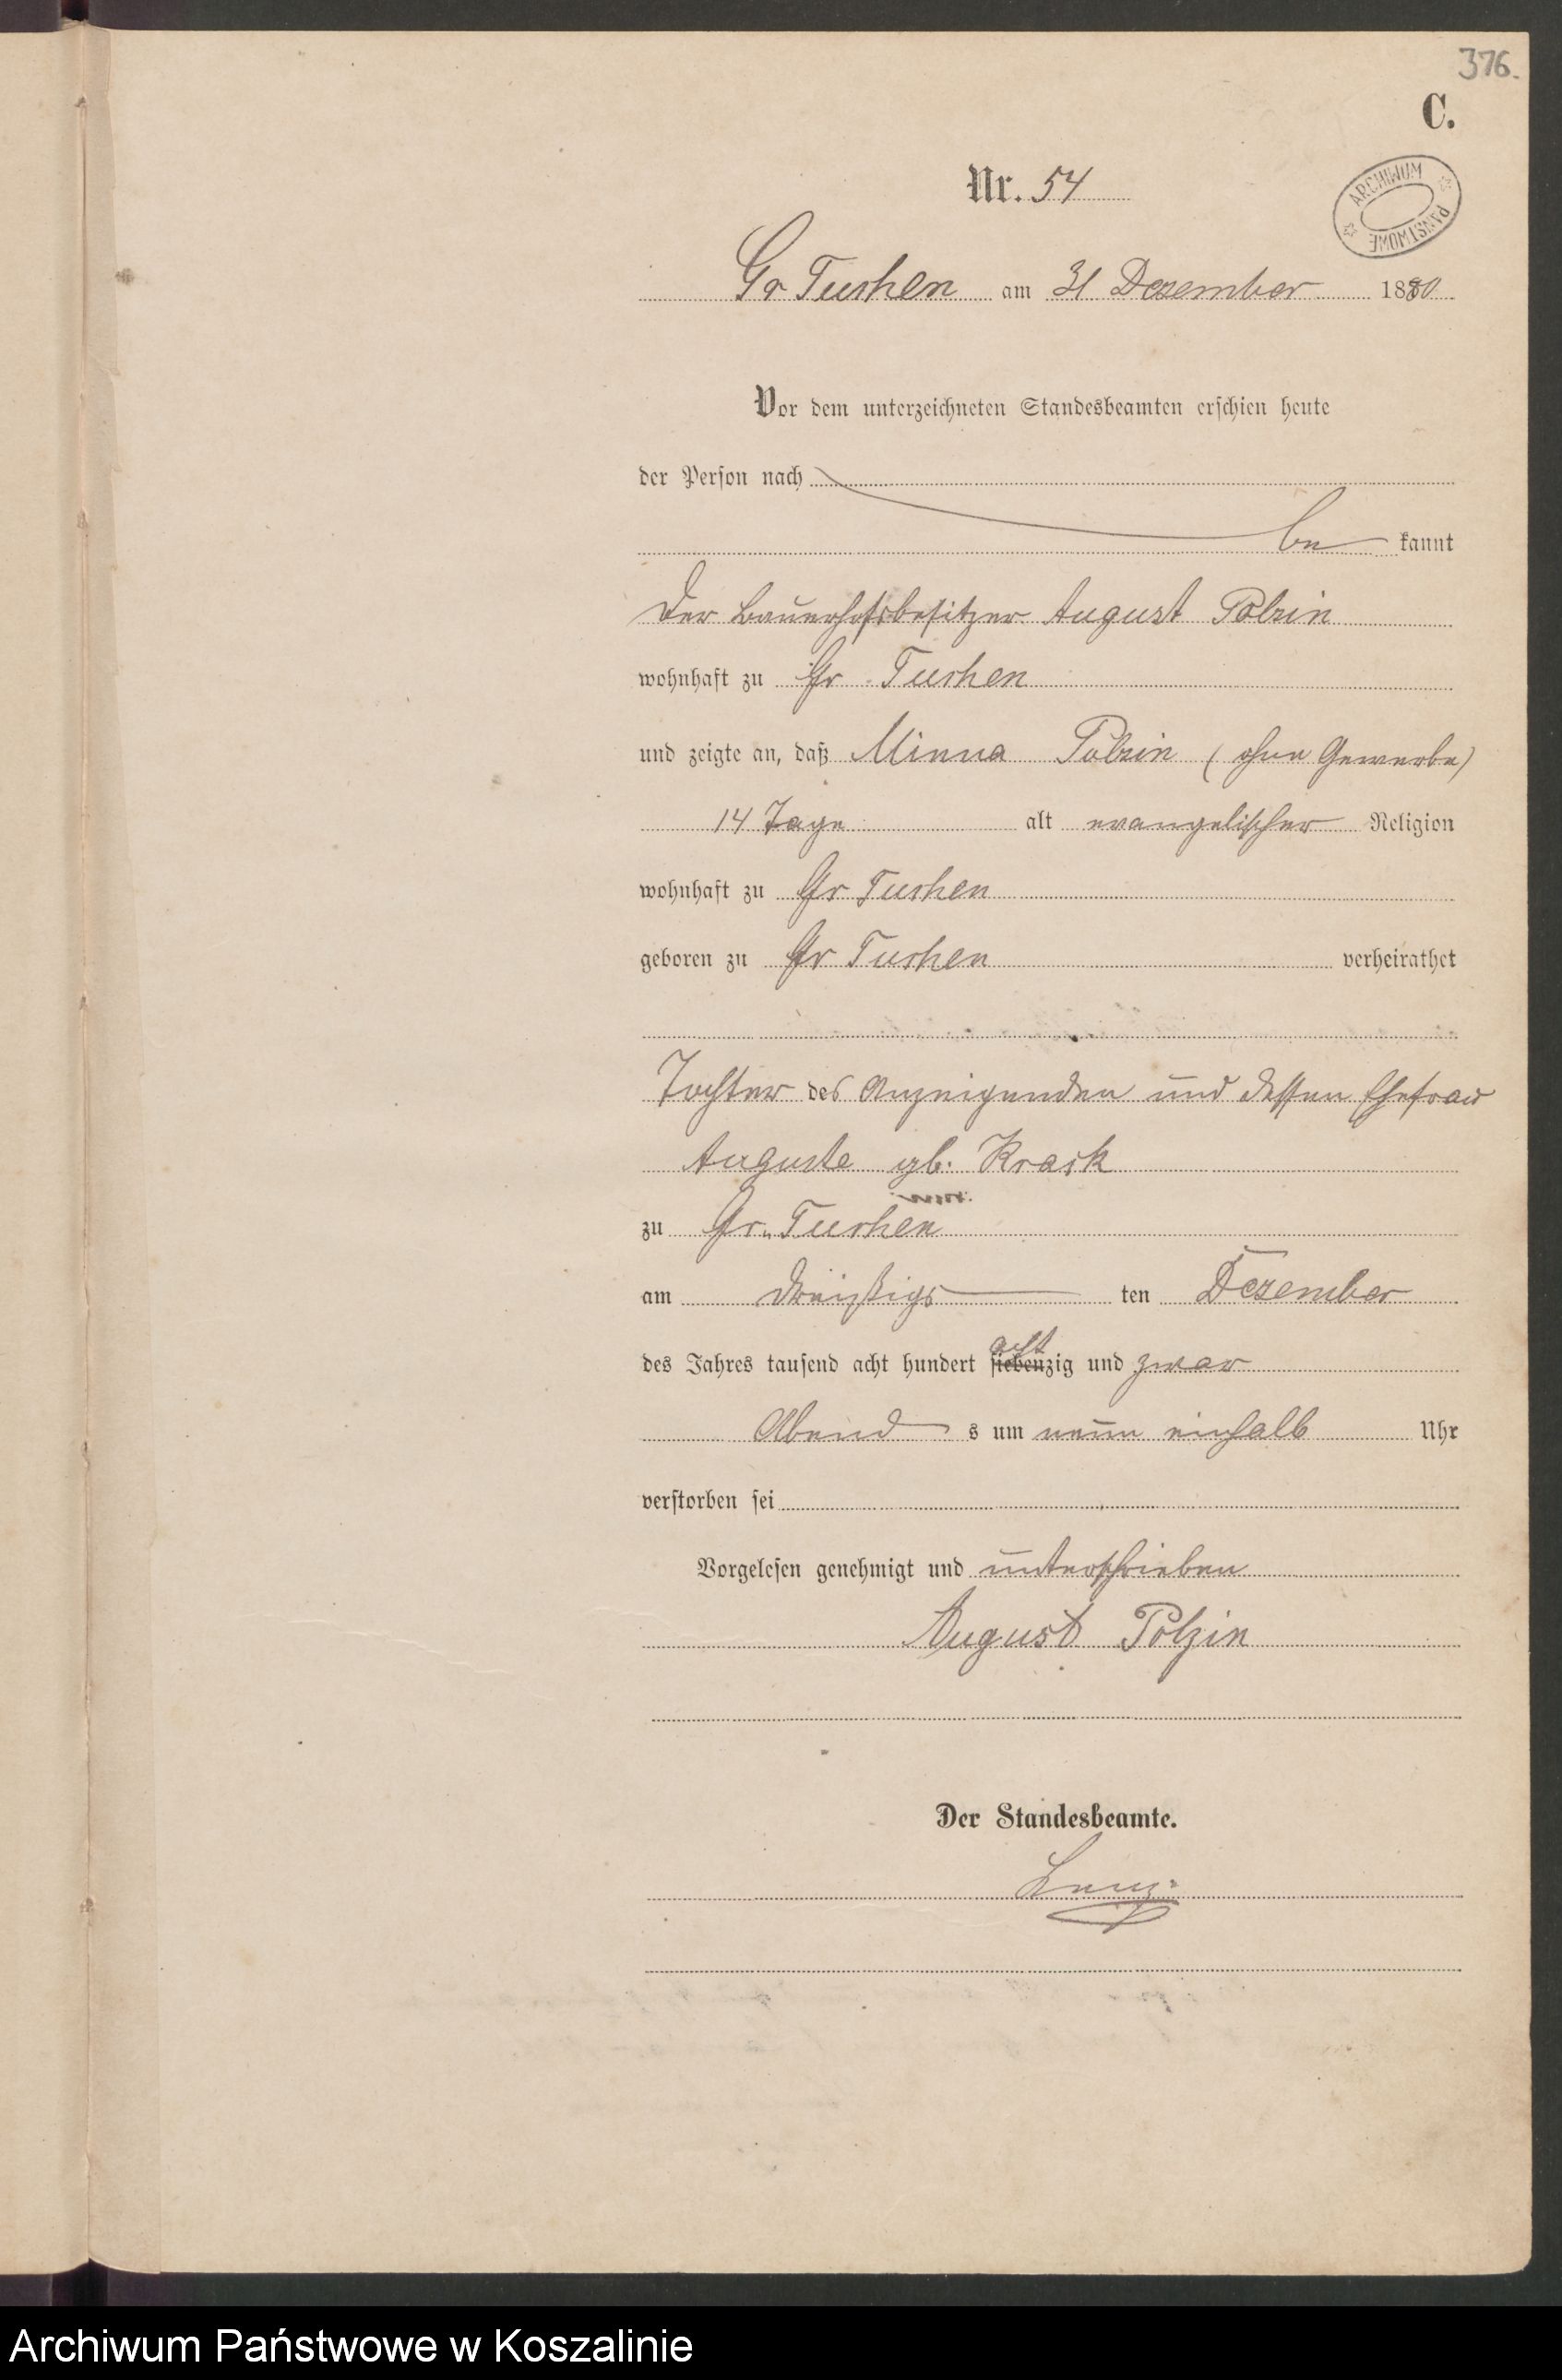 376.
C.
ARCHIWUM PAŃSTWOWE
Nr. 54
Gr Tuchen am 31 Dezember 1880
Vor dem unterzeichneten Standesbeamten erschien heute
der Person nach
be kannt
Der Bauerhofsbesitzer August Polzin
wohnhaft zu Gr Tuchen
und zeigte an, daß Minna Polzin (ohne Gewerbe)
14 Tage alt evangelischer Religion
wohnhaft zu Gr Tuchen
geboren zu Gr Tuchen verheirathet
Tochter des Anzeigenden und dessen Ehefrau
Auguste gb.
zu Gr. Tuchen
am dreißigs ten Dezember
des Jahres tausend acht hundert acht siebenzig und zwar
Abend s um neun einhalb Uhr
verstorben sei
Vorgelesen genehmigt und unterschrieben
August Polzin
Der Standesbeamte.
Archiwum Państwowe w Koszalinie